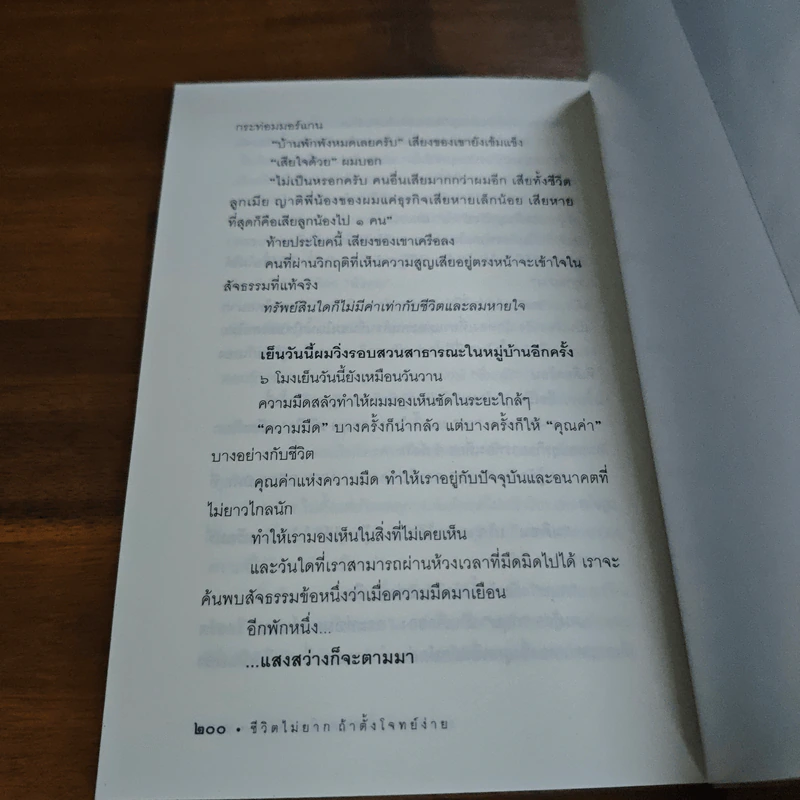 กระท่อมมทร์แกน
"บ้านพักพังหมดเลยครับ" เสียงของเขายังเข้มแข็ง
"เสียใจด้วย" ผมบอก
"ไม่เป็นหรอกครับ คนอื่นเสียมากกว่าผมอีก เสียทั้งชีวิต
ลูกเมีย ญาติพี่น้องของผมแค่ธุรกิจเสียหายเล็กน้อย เสียหาย
ที่สุดก็คือเสียลูกน้องไป ๑ คน"
ท้ายประโยคนี้ เสียงของเขาเครือลง
คนที่ผ่านวิกฤติที่เห็นความสูญเสียอยู่ตรงหน้าจะเข้าใจใน
สัจธรรมที่แท้จริง
ทรัพย์สินใดก็ไม่มีค่าเท่ากับชีวิตและลมหายใจ
เย็นวันนี้ผมวิ่งรอบสวนสาธารณะในหมู่บ้านอีกครั้ง
๖ โมงเย็นวันนี้ยังเหมือนวันวาน
ความมืดสลัวทำให้ผมมองเห็นชัดในระยะใกล้ๆ
"ความมืด" บางครั้งก็น่ากลัว แต่บางครั้งก็ให้ "คุณค่า"
บางอย่างกับชีวิต
คุณค่าแห่งความมืด ทำให้เราอยู่กับปัจจุบันและอนาคตที่
ไม่ยาวไกลนัก
ทำให้เรามองเห็นในสิ่งที่ไม่เคยเห็น
และวันใดที่เราสามารถผ่านห้วงเวลาที่มืดมิดไปได้ เราจะ
ค้นพบสัจธรรมข้อหนึ่งว่าเมื่อความมืดมาเยือน
อีกพักหนึ่ง...
...แสงสว่างก็จะตามมา
๒๐๐ • ชีวิตไม่ยาก ถ้าตั้งโจทย์ง่าย